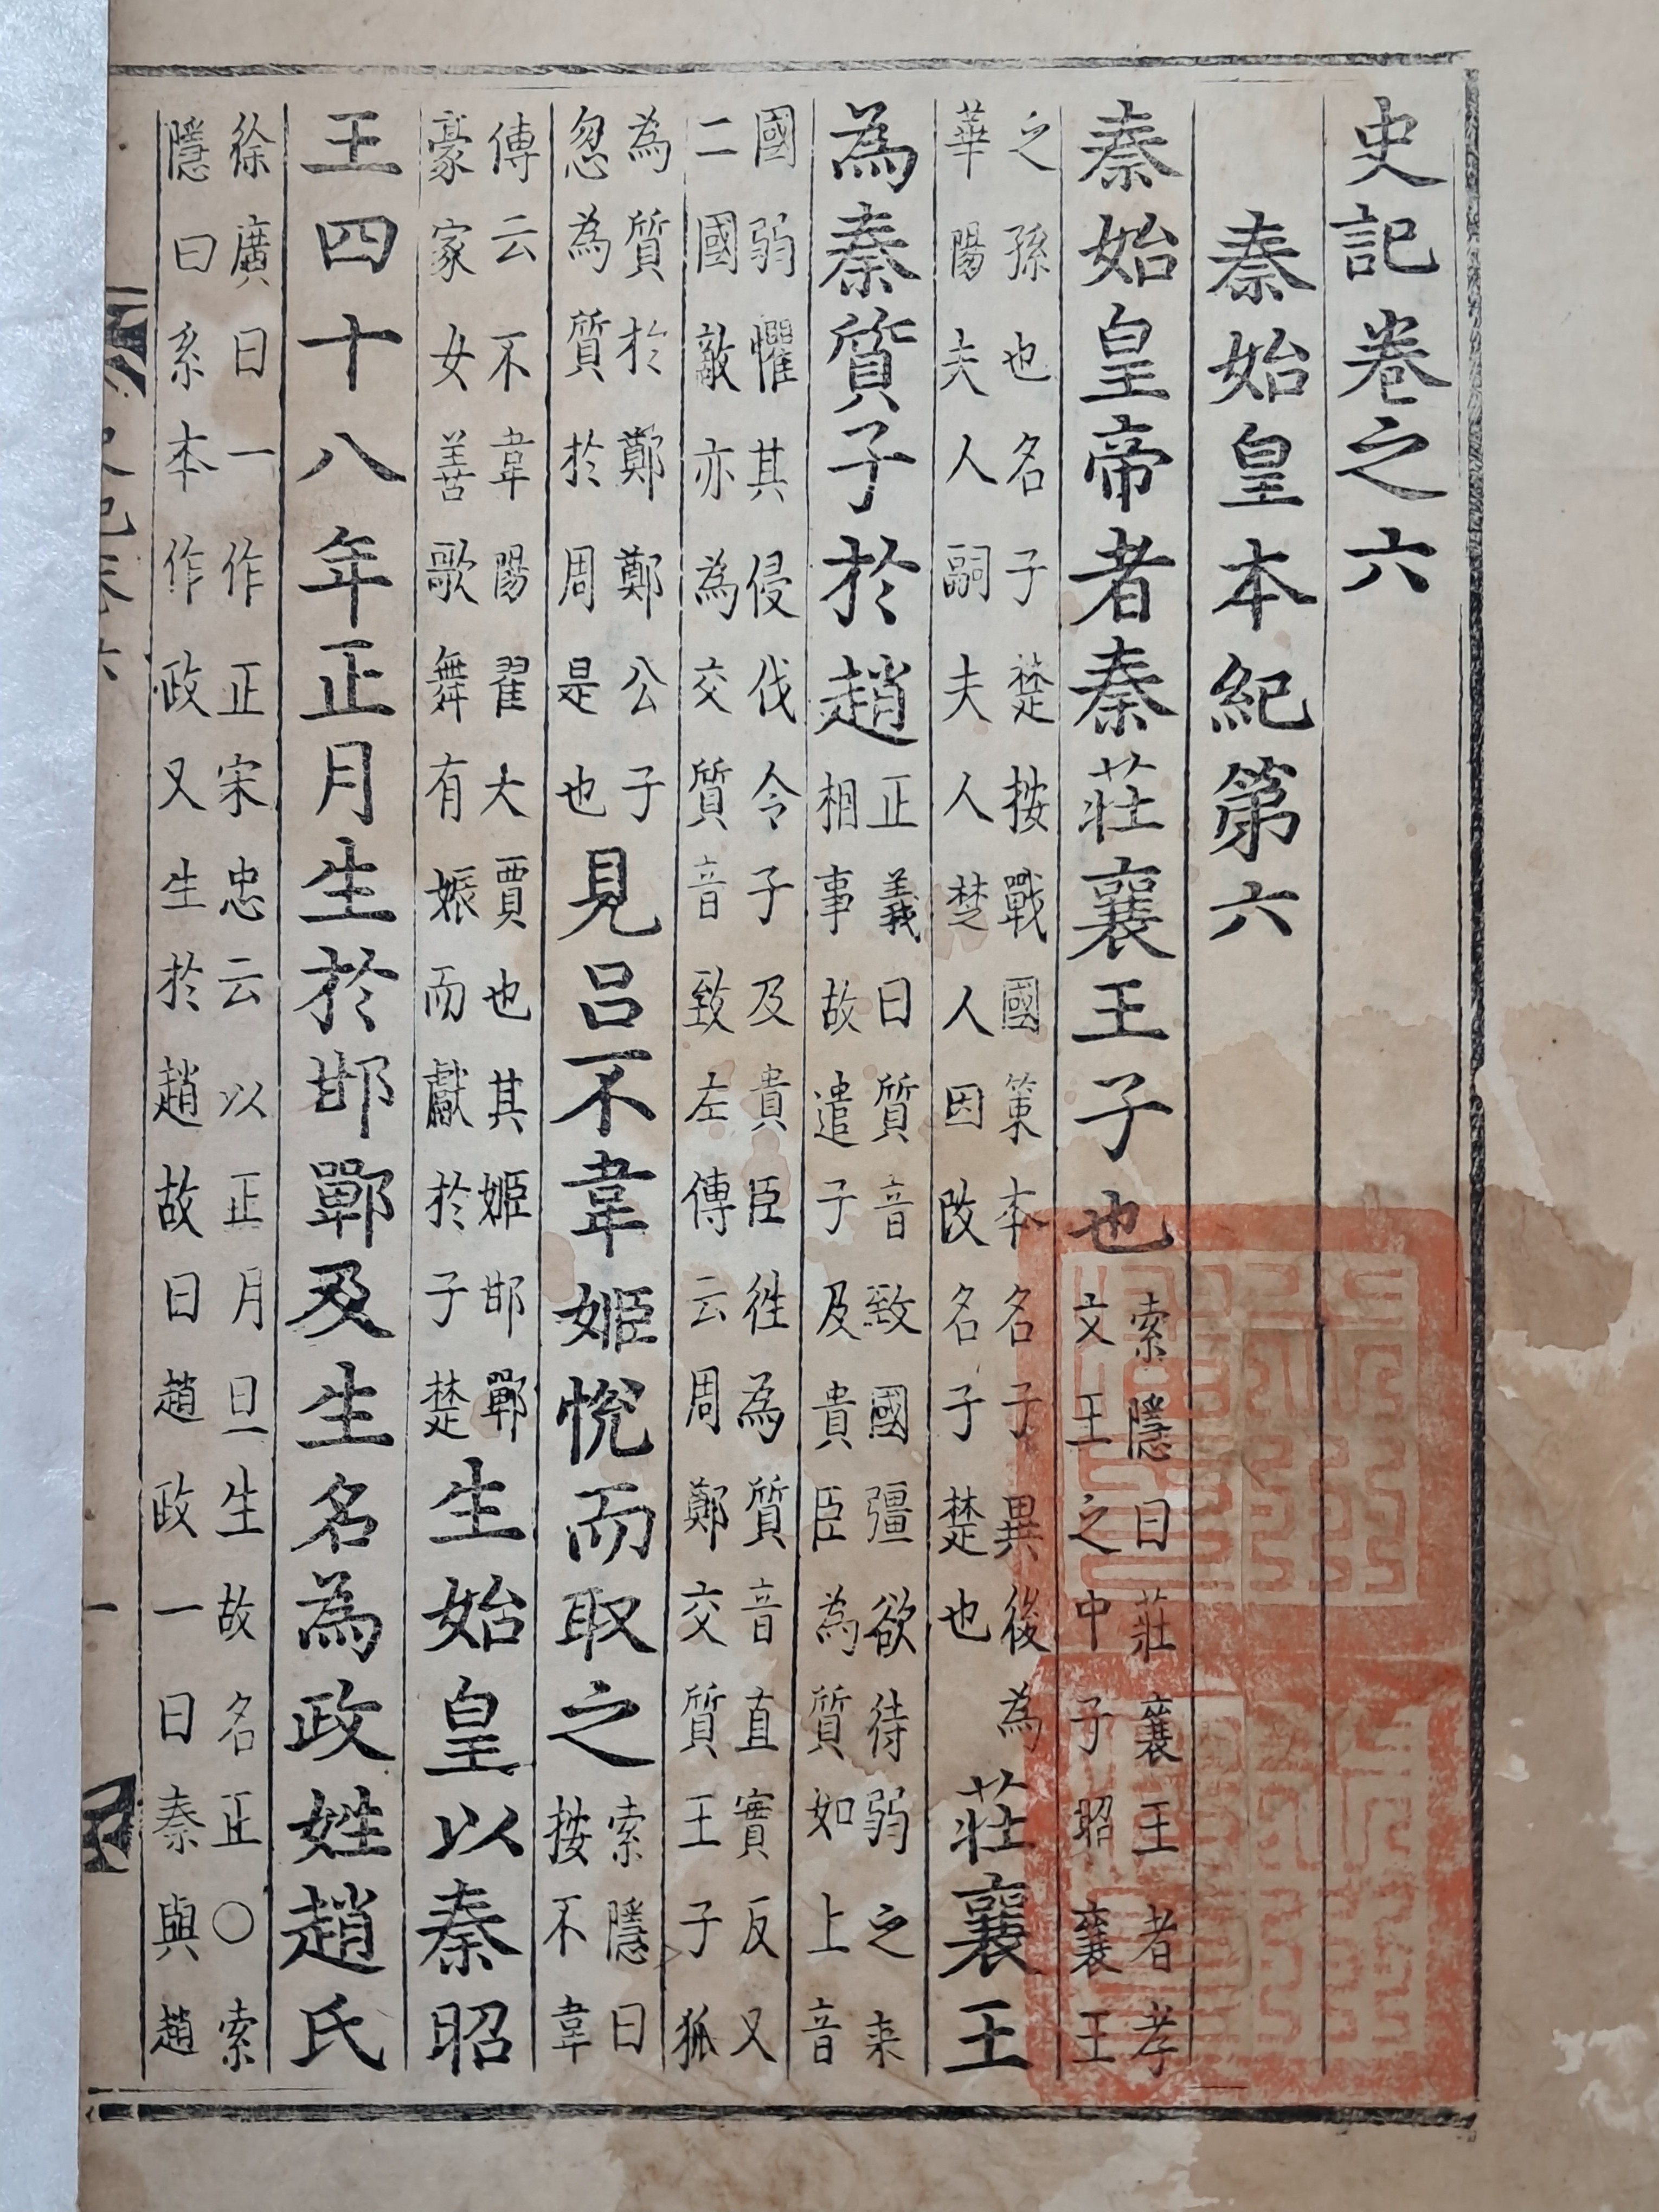 史記卷之六
秦始皇本紀第六
秦始皇帝者秦莊襄王子也
索隱曰莊襄王者孝
文王之中子昭襄王
之孫也名子楚按戰國策本名子異後為
華陽夫人嗣夫人楚人因改名子楚也
莊襄王
為秦質子於趙
正義曰質音致國彊欲待弱之来
相事故遣子及貴臣為質如上音
國弱懼其侵伐令子及貴臣徃為質音直實反又
二國敵亦為交質音致左傳云周鄭交質王子狐
為質於鄭鄭公子
忽為質於周是也
見呂不韋姬悅而取之
索隱曰
按不韋
傳云不韋陽翟大賈也其姬邯鄲
豪家女善歌舞有娠而獻於子楚
生始皇以秦昭
王四十八年正月生於邯鄲及生名為政姓趙氏
徐廣曰一作正宋忠云以正月旦生故名正○索
隱曰系本作政又生於趙故曰趙政一曰秦與趙